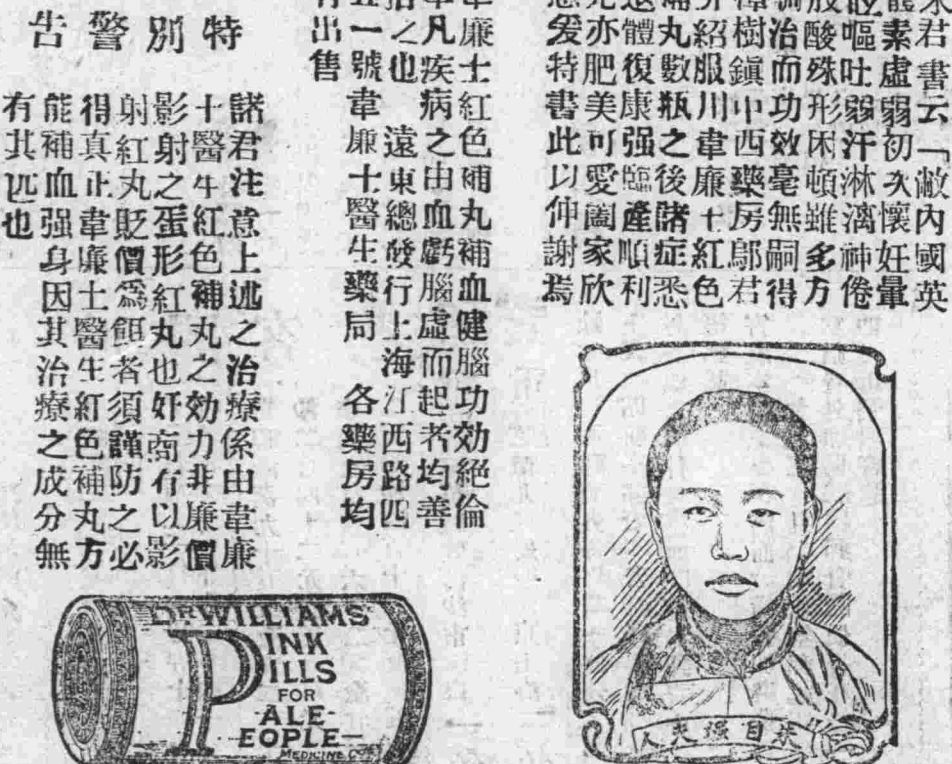 君書云「敝內國英
體素虛弱初次懷妊暈
眩嘔吐弱汗淋漓神倦
肢酸殊形困頓雖多方
調治而功效毫無嗣得
樟樹鎮中西藥房鄔君
介紹服用韋廉士紅色
補丸數瓶之後諸症悉
退體復康强臨產順利
兒亦肥美可愛闔家欣
慰爰特書此以伸謝焉
朱自强夫人
韋廉士紅色補丸補血健腦功効絕倫
凡疾病之由血虧腦虛而起者均善
治之也 遠東總發行上海江西路四
五一號韋廉士醫生藥局 各藥房均
有出售
特別警告
諸君注意上述之治療係由韋廉
士醫生紅色補丸之効力非廉價
影射之蛋形紅丸也奸商有以影
射紅丸貶價爲餌者須謹防之必
得真正韋廉士醫生紅色補丸方
能補血强身因其治療之成分無
有其匹也
DR WILLIAMS'
PINK
PILLS
FOR
PALE
PEOPLE
MEDICINE Co